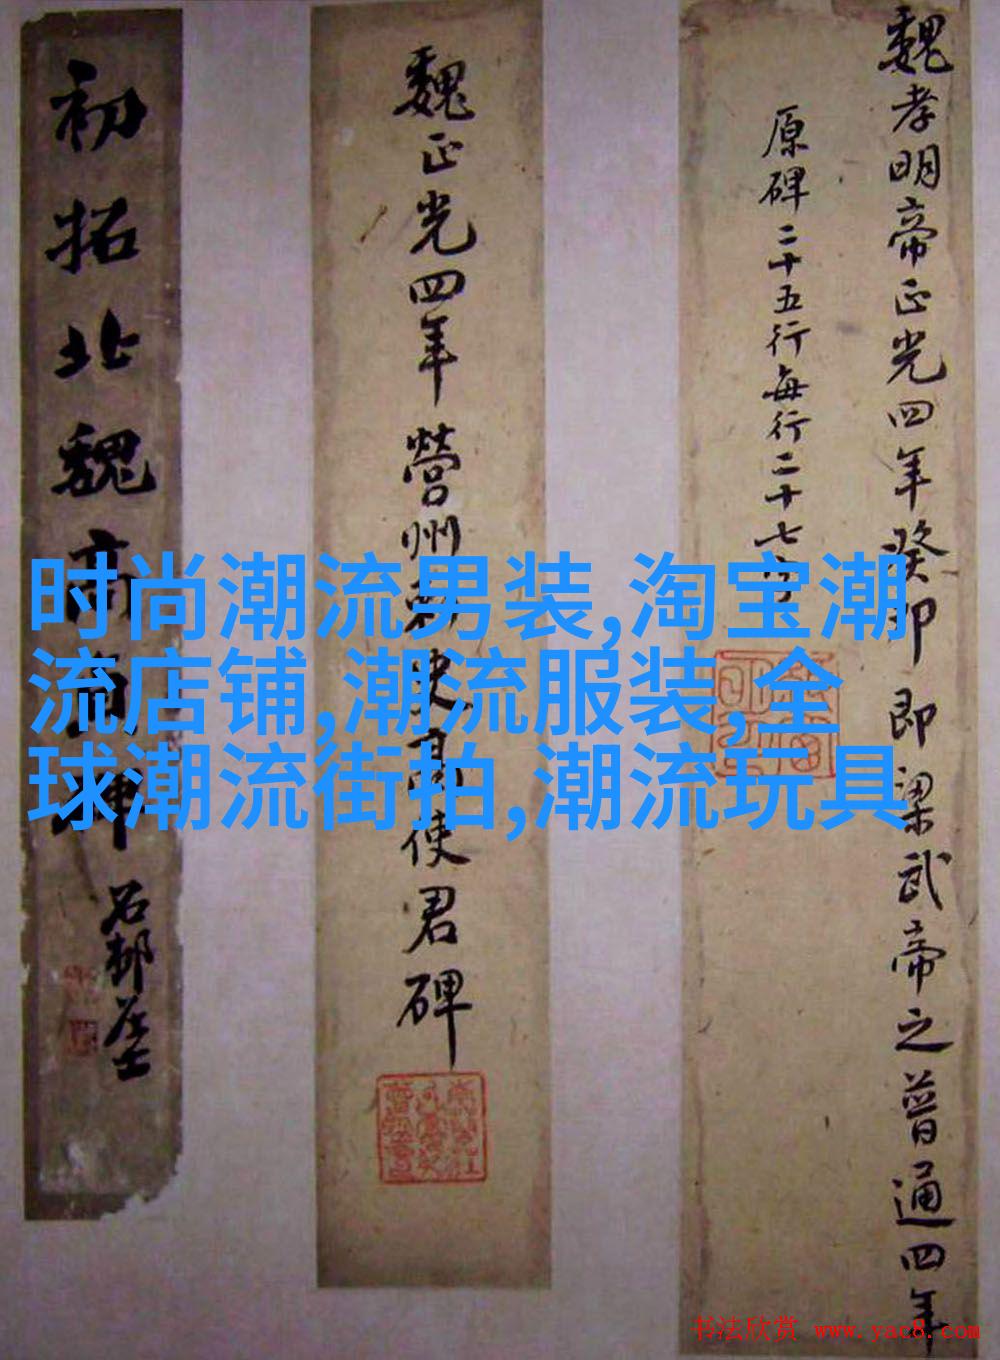 魏孝明帝正光四年癸卯即梁武帝之普通四年
原碑二十五行每行二十七字
魏正光四年營州刺史高使君碑
初拓北魏高
碑
石邨居士
时尚潮流男装,淘宝潮
流店铺,潮流服装,全
球潮流街拍,潮流玩具
书法欣赏 www.yac8.com